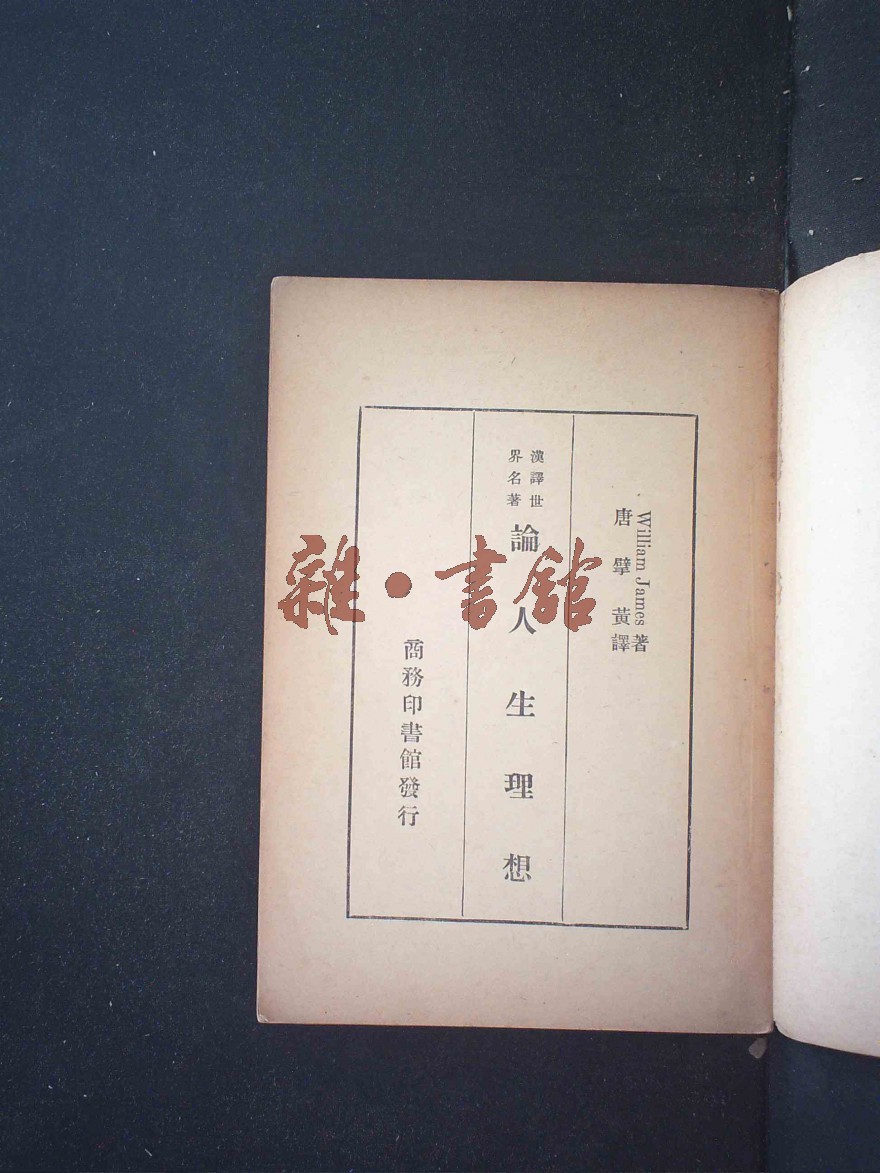 William James著
唐擘黃譯
漢譯世
界名著
論人生理想
商務印書館發行
雜·書館